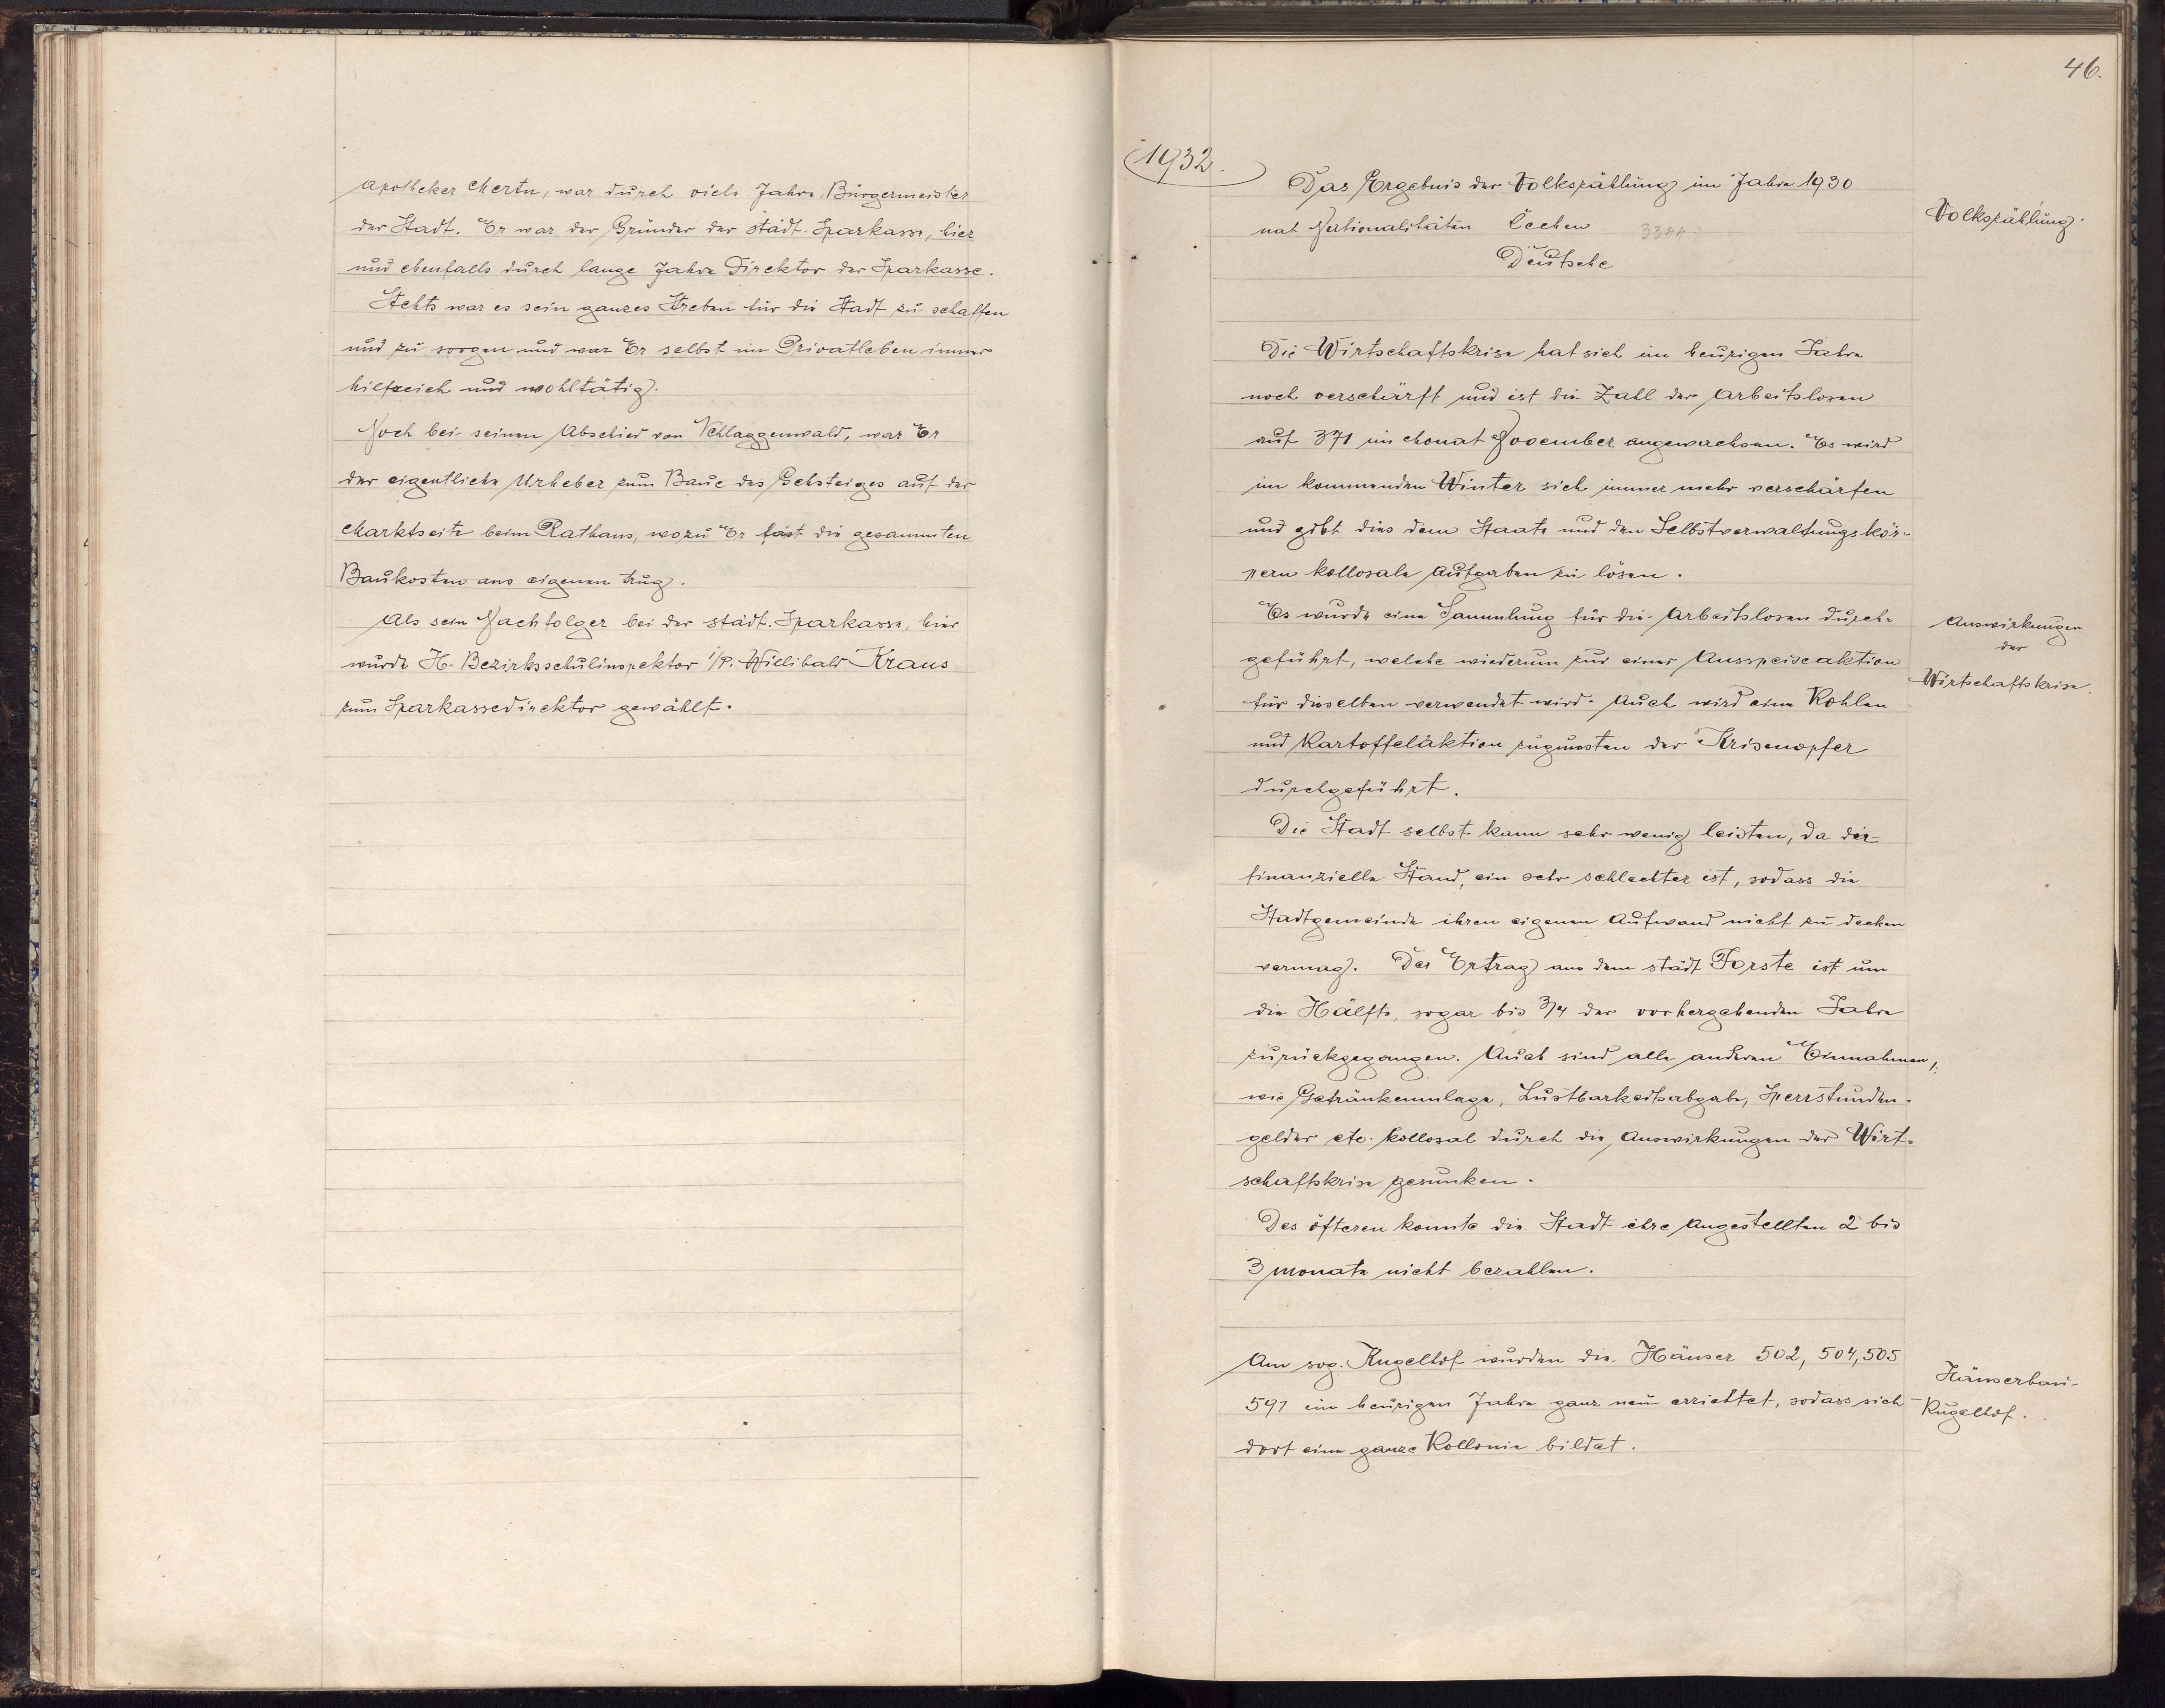 Apotheker Mertn, war durch viele Jahre, Bürgermeister
der Stadt. Er war der Gründer der städt. Sparkasse, hier
und ebenfalls durch lange Jahre Direktor der Sparkasse.
Stehts war es sein ganzes Streben für die Stadt zu schaffen
und zu sorgen und war Er selbst im Privatleben immer
hilfreich und wohltätig.
Noch bei seinem Abschied von Schlaggenwald, war Er
der eigentliche Urheber zum Baue des Gehsteiges auf der
Marktseite beim Rathaus, wozu Er fast die gesammten
Baukosten aus eigenen trug.
Als sein Nachfolger bei der städt. Sparkasse, hier
wurde H. Bezirksschulinspektor i/P. Willibald Kraus
zum Sparkassedirektor gewählt.
46.
1932.
Das Ergebnis der Volkszählung im Jahre 1930
nat Nationalitäten Čechen 3344
Deutsche
Volkszählung.
Die Wirtschaftskrise hat sich im heurigen Jahre
noch verschärft und ist die Zahl der Arbeitslosen
auf 371 im Monat November angewachsen. Es wird
im kommenden Winter sich immer mehr verschärfen
und gibt dies dem Staate und den Selbstverwaltungskör-
pern kollosale Aufgaben zu lösen.
Es wurde eine Sammlung für die Arbeitslosen durch-
geführt, welche wiederum zur einer Ausspeiseaktion
für dieselben verwendet wird. Auch wird eine Kohlen
und Kartoffelaktion zugunsten der Krisenopfer
durchgeführt.
Auswirkungen
der
Wirtschaftskrise.
Die Stadt selbst kann sehr wenig leisten, da der
finanzielle Stand, ein sehr schlechter ist, sodass die
Stadtgemeinde ihren eigenen Aufwand nicht zu decken
vermag. Der Ertrag aus dem städt Forste ist um
die Hälfte, sogar bis 3/4 der vorhergehenden Jahre
zurückgegangen. Auch sind alle anderen Einnahmen,
wie Getränkeumlage, Lustbarkeitsabgabe, Sperrstunden-
gelder etc. kollosal durch die Auswirkungen der Wirt-
schaftskrise gesunken.
Des öfteren konnte die Stadt ihre Angestellten 2 bis
3 Monate nicht bezahlen.
Am sog. Kugelhof wurden die Häuser 502, 504, 505
591 im heurigen Jahre ganz neu errichtet, sodass sich
dort eine ganze Kollonie bildet.
Häuserbau-
Kugelhof.